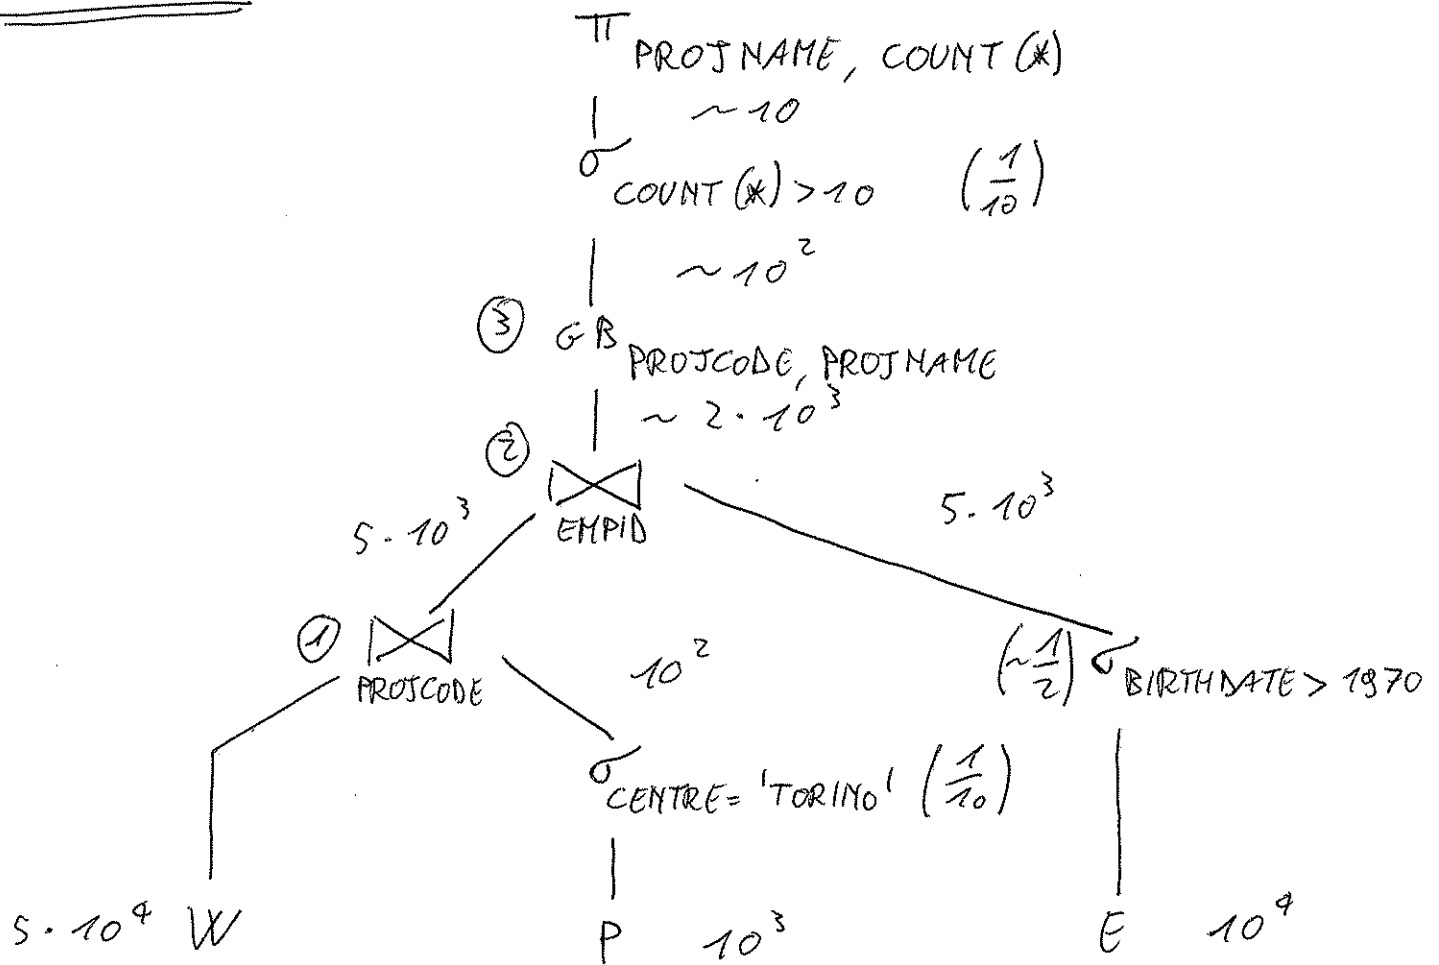 π PROJNAME, COUNT(*)
~10
σ COUNT(*)>10 (1/10)
~10²
③ GB PROJCODE, PROJNAME
~ 2·10³
② ⋈ EMPID
5·10³
5·10³
① ⋈ PROJCODE
10²
(~1/2) σ BIRTHDATE > 1970
σ CENTRE='TORINO' (1/10)
5·10⁴ W
P 10³
E 10⁴